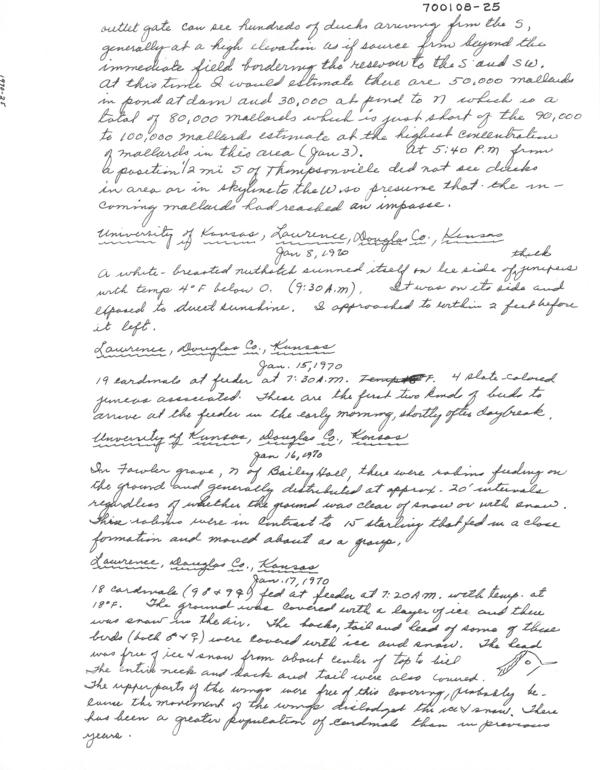 700108-25
1970-25
outlet gate can see hundreds of ducks arriving frm the S,
generally at a high elevation as if source frm beyond the
immediate field bordering the resevoir to the S and SW.
At this time I would estimate there are 50,000 mallards
in pond at dam and 30,000 at pond to N which is a
total of 80,000 mallards which is just short of the 90,000
to 100,000 mallard estimate at the highest concentration
of mallards in this area (Jan 3). At 5:40 P.M from
a position 1/2 mi S of Thompsonville did not see ducks
in area or in skyline to the W. so presume that the in-
coming mallards had reached an impasse.
University of Kansas, Lawrence, Douglas Co., Kansas
Jan 8, 1970
A white-breasted nuthatch sunned itself on lee side of thick junipers
with temp 4°F below 0. (9:30 A.M). It was on its side and
exposed to direct sunshine. I approached to within 2 feet before
it left.
Lawrence, Douglas Co., Kansas
Jan. 15, 1970
19 cardinals at feeder at 7:30 A.M. 4 slate-colored
juncos associated. These are the first two kinds of birds to
arrive at the feeder in the early morning, shortly after daybreak.
University of Kansas, Douglas Co., Kansas
Jan 16, 1970
In Fowler grove, N of Bailey Hall, there were robins feeding on
the ground and generally distributed at approx. 20' intervals
regardless of whether the ground was clear of snow or with snow.
This robins were in contrast to 15 starling that fed in a close
formation and moved about as a group.
Lawrence, Douglas Co., Kansas
Jan. 17, 1970
18 cardinals (9♂ & 9♀) fed at feeder at 7:20 A.M. with temp. at
18°F. The ground was covered with a layer of ice and there
was snow in the air. The backs, tail and head of some of these
birds (both ♂ & ♀) were covered with ice and snow. The head
was free of ice & snow from about center of top to bill
The entire neck and back and tail were also covered.
The upper parts of the wings were free of this covering, probably be-
cause the movement of the wings dislodged the ice & snow. There
has been a greater population of cardinals than in previous
years.